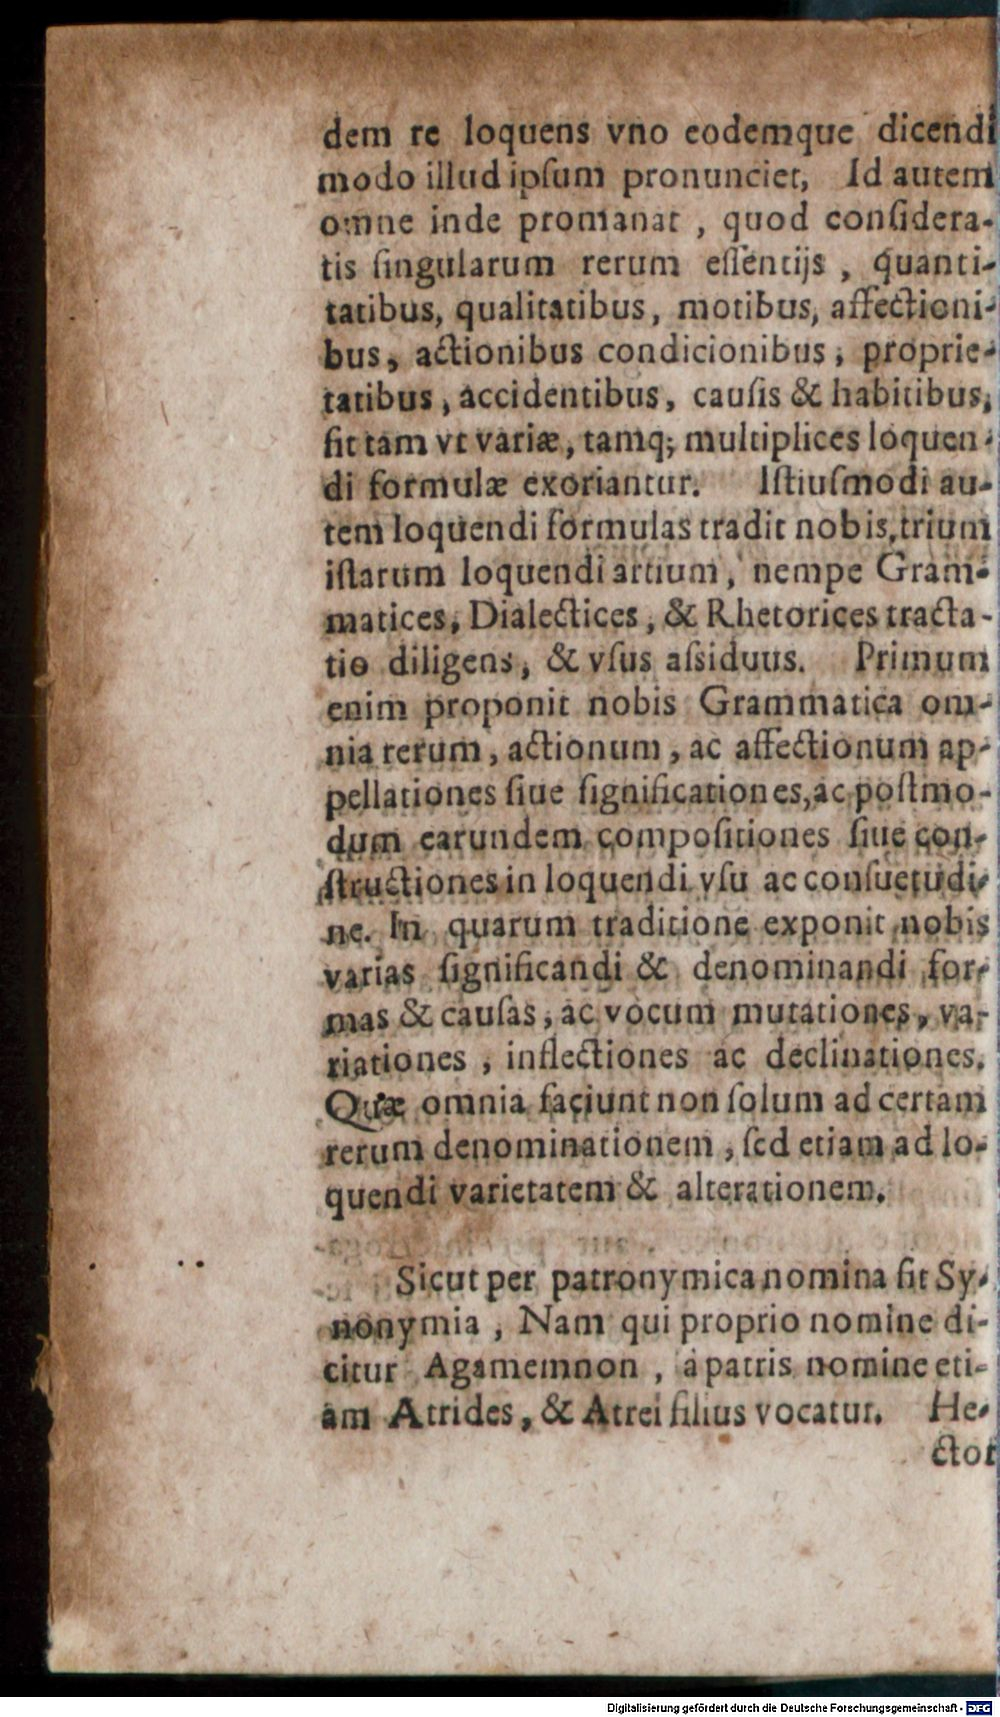 dem re loquens vno eodemque dicendi
modo illud ipſum pronunciet, Id autem
omne inde promanat , quod conſidera-
tis ſingularum rerum eſſentijs , quanti-
tatibus, qualitatibus, motibus, affectioni-
bus, actionibus condicionibus, proprie-
tatibus, accidentibus, cauſis & habitibus,
fit tam vt variæ, tamq; multiplices loquen-
di formulæ exoriantur. Iſtiuſmodi au-
tem loquendi formulas tradit nobis, trium
iſtarum loquendi artium, nempe Gram-
matices, Dialectices, & Rhetorices tracta-
tio diligens, & vſus aſsiduus. Primum
enim proponit nobis Grammatica om-
nia rerum, actionum, ac affectionum ap-
pellationes ſiue ſignificationes, ac poſtmo-
dum earundem compoſitiones ſiue con-
ſtructiones in loquendi vſu ac conſuetudi-
ne. In quarum traditione exponit nobis
varias ſignificandi & denominandi for-
mas & cauſas, ac vocum mutationes, va-
riationes , inflectiones ac declinationes.
Quæ omnia faciunt non ſolum ad certam
rerum denominationem, ſed etiam ad lo-
quendi varietatem & alterationem.
Sicut per patronymica nomina fit Sy-
nonymia , Nam qui proprio nomine di-
citur Agamemnon , à patris nomine eti-
am Atrides, & Atrei filius vocatur. He-
ctor
Digitalisierung gefördert durch die Deutsche Forschungsgemeinschaft - DFG